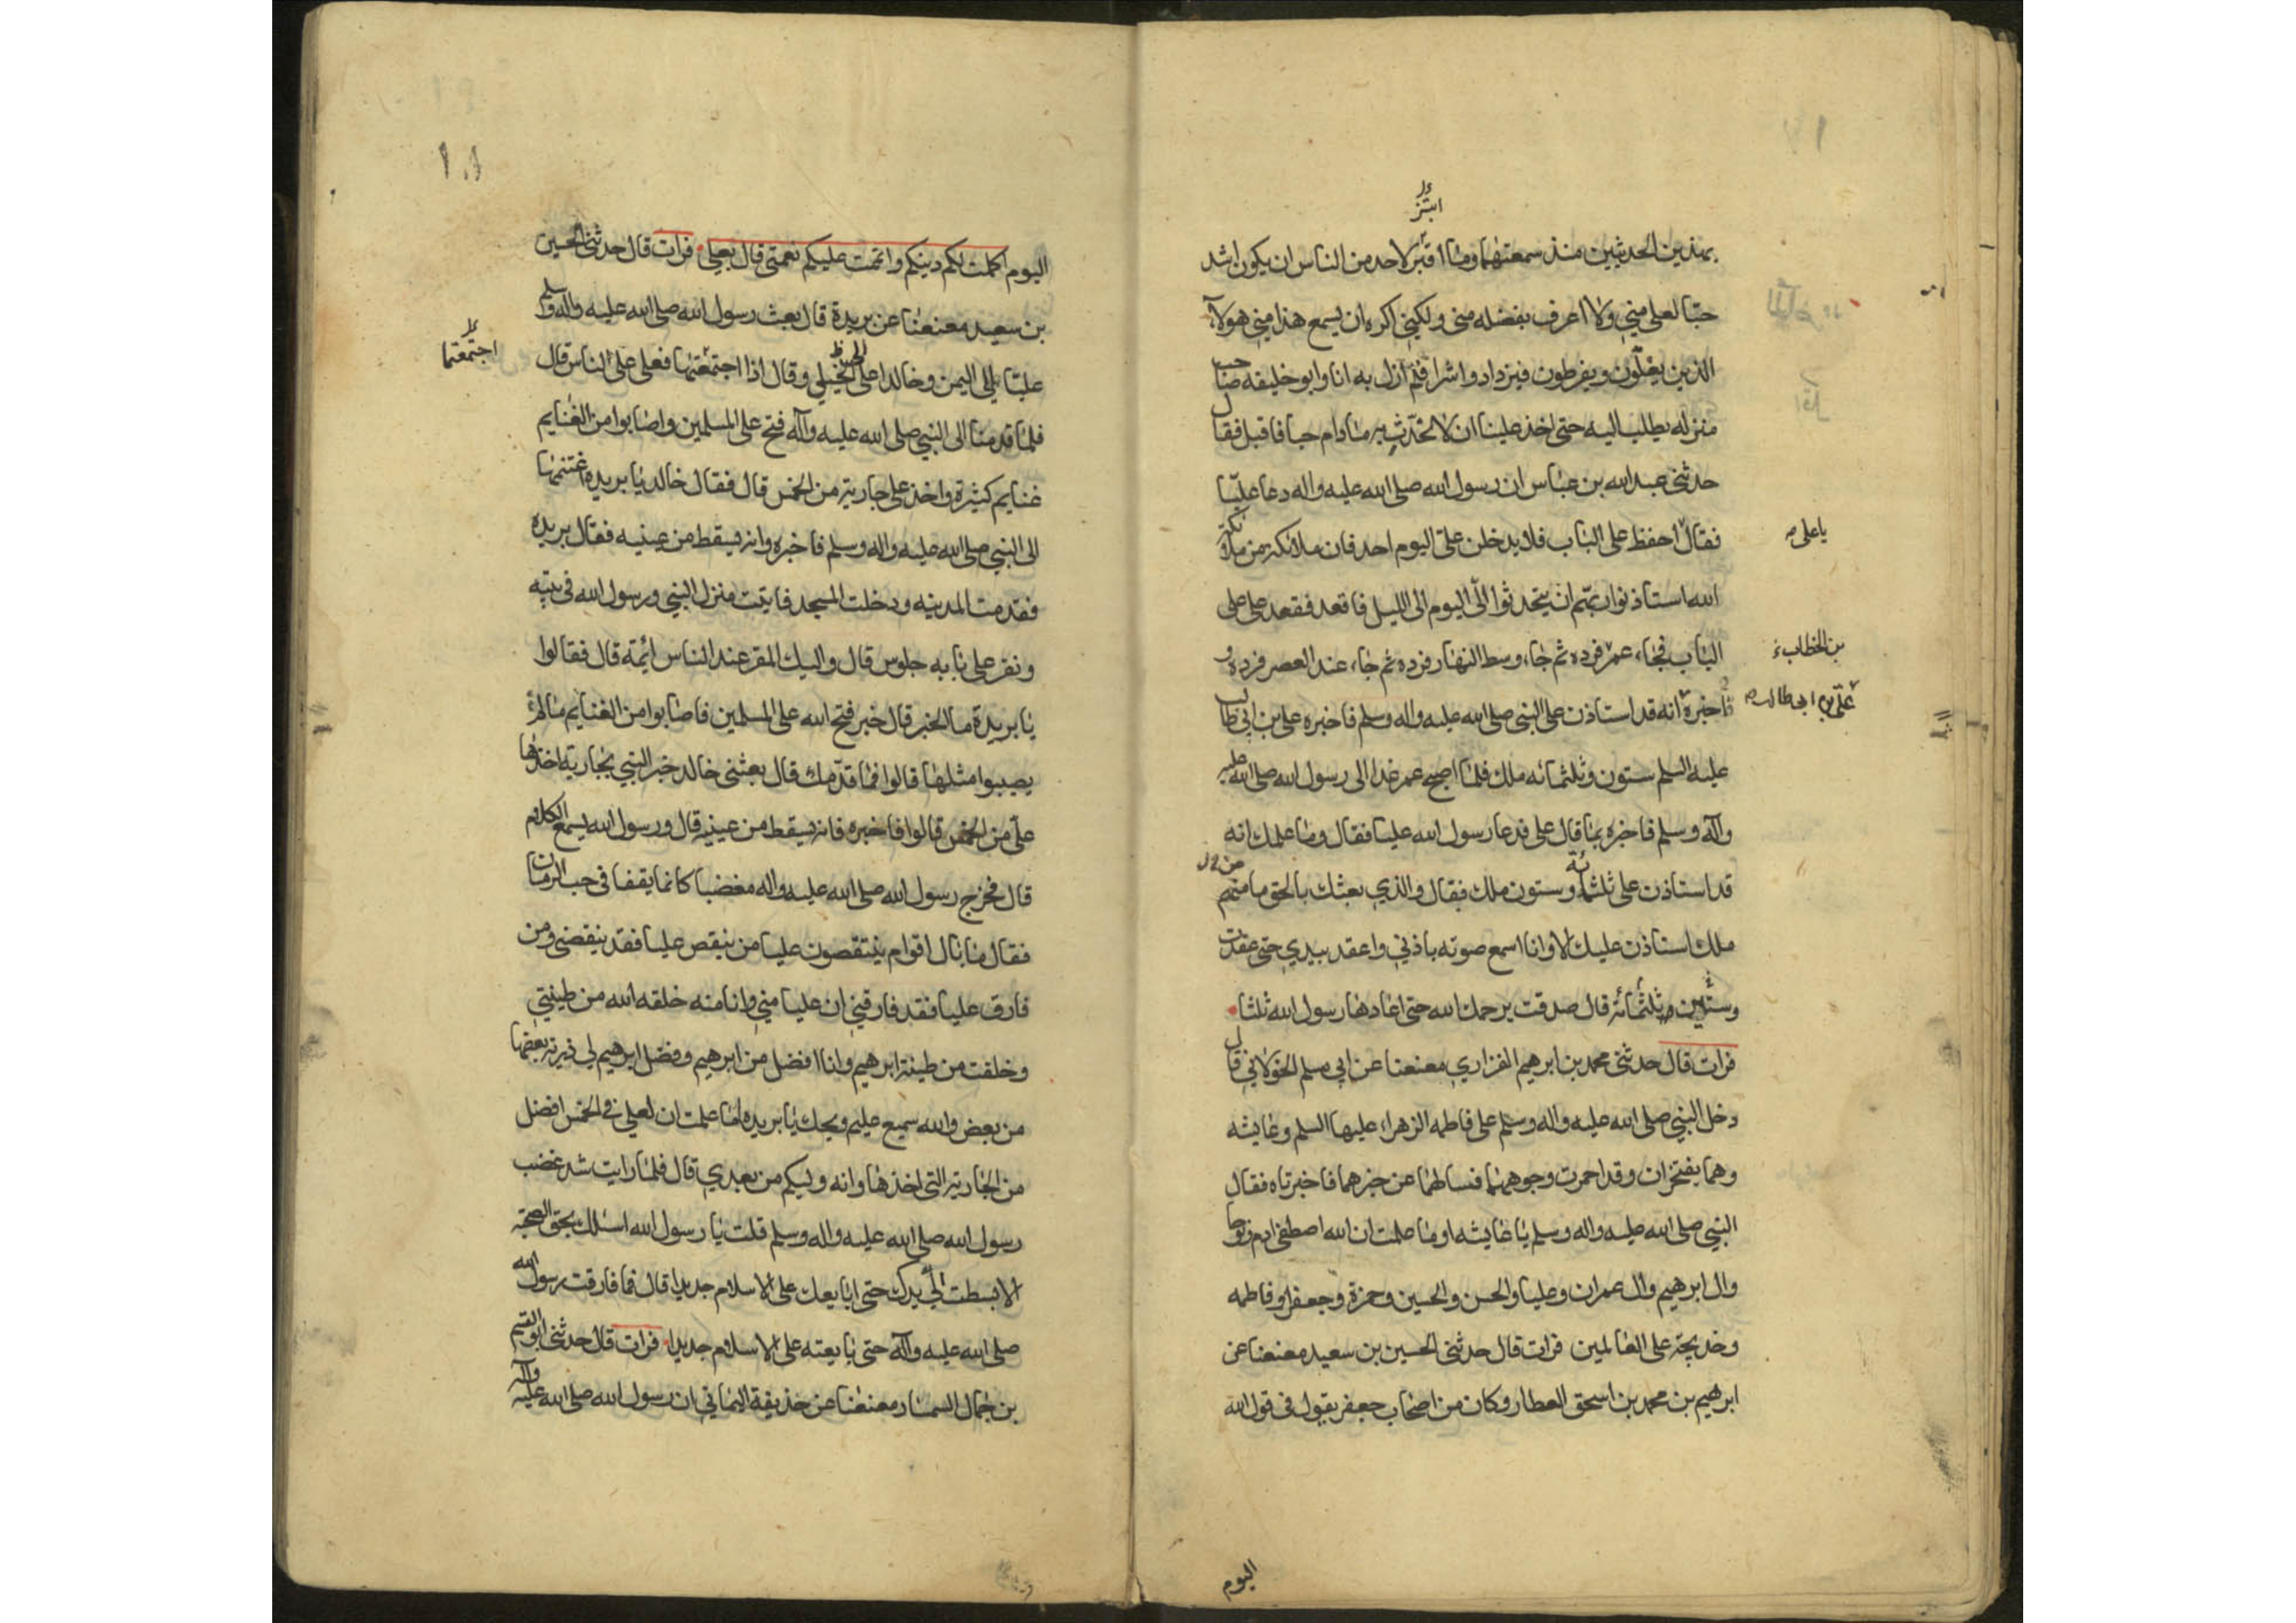 ابتر
بهذين الحديثين منذ سمعتهما وما اقبر لاحد من الناس ان يكون اشد
حبا لعلي مني ولا اعرف بفضله مني ولكني اكره ان يسمع هذا مني هولآء
الذين يغلون ويفرطون فيزدادوا شرا فلم ازل به انا وابو خليفه صاحب
منزله نطلب اليه حتى اخذ علينا ان لا نحدث به مادام حيا فاقبل فقال
حدثنى عبد الله بن عباس ان رسول الله صلى الله عليه واله دعا عليا
فقال احفظ على الباب فلا يدخلن علىّ اليوم احد فان ملائكة من ملائكة
يا على
الله استاذنوا ربهم ان يتحدثوا الىّ اليوم الى الليل فاقعد فقعد على على
الباب فجاء عمر فرده ثم جاء وسط النهار فرده ثم جاء عند العصر فرده و
بن الخطاب
اخبره انه قد استاذن على النبى صلى الله عليه واله وسلم فاخبره على بن ابى طالب
علىّ بن ابى طالب
عليه السلم ستون وثلثمائه ملك فلما اصبح عمر غدا الى رسول الله صلى الله عليه
وآله وسلم فاخبره بما قال على فدعا رسول الله عليا فقال وما علمك انه
قد استاذن على ثلثمائة وستون ملك فقال والذي بعثك بالحق ما منهم من
ملك استاذن عليك الا وانا اسمع صوته باذني واعقد بيدي حتى عقدت
وستين وثلثمائة قال صدقت يرحمك الله حتى اعادها رسول الله ثلثا
فرات قال حدثنى محمد بن ابرهيم الفزاري معنعنا عن ابي مسلم الخولاني قال
دخل النبي صلى الله عليه واله وسلم على فاطمه الزهراء عليها السلم وعايشه
وهما يفتخران وقد احمرت وجوههما فسالهما عن خبرهما فاخبرتاه فقال
النبي صلى الله عليه واله وسلم يا عايشه اوما علمت ان الله اصطفى ادم ونوحا
وال ابرهيم وال عمران وعليا والحسن والحسين وحمزة وجعفر وفاطمه
وخديجة على العالمين فرات قال حدثنى الحسين بن سعيد معنعنا عن
ابرهيم بن محمد بن اسحق العطار وكان من اصحاب جعفر يقول فى قول الله
اليوم
١٠١
اليوم اكملت لكم دينكم واتممت عليكم نعمتى قال بعلي فرات قال حدثنى الحسين
بن سعيد معنعنا عن بريدة قال بعث رسول الله صلى الله عليه واله وسلم
عليّا الى اليمن وخالدا على الخيل وقال اذا اجتمعتما فعلي على الناس قال
اجتمعتما
فلما قدمنا الى النبي صلى الله عليه وآله فتح على المسلمين واصابوا من الغنايم
غنايم كثيرة واخذ على جارية من الخمس قال فقال خالد يا بريده اغتنمها
الى النبي صلى الله عليه واله وسلم فاخبره وانه يسقط من عينيه فقال بريده
فقدمت المدينه ودخلت المسجد فاتيت منزل النبي ورسول الله فى بيته
ونفر على بابه جلوس قال واليك المفر عند الناس ائمة قال فقالوا
يا بريدة ما الخبر قال خير فتح الله على المسلمين فاصابوا من الغنايم مالم
يصيبوا مثلها قالوا فما قدّمك قال بعثنى خالد خبر النبي بجارية اخذها
علىّ من الخمس قالوا فاخبره فانه يسقط من عينيه قال ورسول الله يسمع الكلام
قال فخرج رسول الله صلى الله عليه واله مغضبا كانما يفقا فى حب الرمان
فقال ما بال اقوام ينتقصون عليا من ينقص عليا فقد ينقضى ومن
فارق عليا فقد فارقني ان عليا مني وانا منه خلقه الله من طينتي
وخلقت من طينة ابرهيم وانا افضل من ابرهيم وفضل ابرهيم لى ذرية بعضها
من بعض والله سميع عليم ويحك يا بريده اما علمت ان لعلي فى الخمس افضل
من الجارية التى اخذها وانه وليكم من بعدي قال فلما رايت شد غضب
رسول الله صلى الله عليه واله وسلم قلت يا رسول الله اسئلك بحق الصحبة
الا بسطت الى يدك حتى ابايعك على الاسلام جديدا قال فما فارقت رسول الله
صلى الله عليه وآله حتى بايعته على الاسلام جديدا فرات قال حدثنى ابو القسم
بن جمال السمسار معنعنا عن حذيفة اليماني ان رسول الله صلى الله عليه وآله